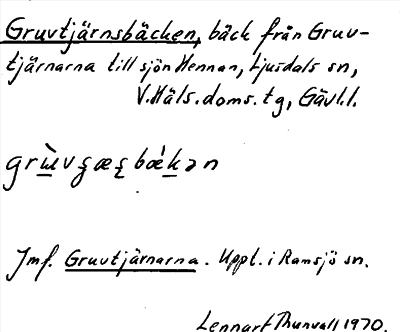 Gruvtjärnsbäcken, bäck från Gruv-
tjärnarna till sjön Hennan, Ljusdals sn,
V.Häls.doms.tg, Gävl.l.
Jmf. Gruvtjärnarna. Uppt. i Ramsjö sn.
Lennart Thunvall 1970.